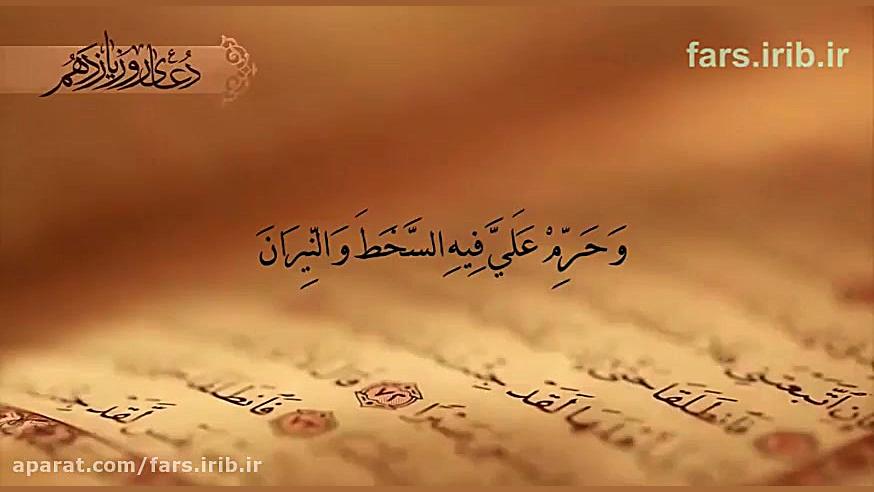 دُعای روز یازدهم
fars.irib.ir
وَ حَرِّمْ عَلَيَّ فِيهِ السَّخَطَ وَ النِّيرَانَ
فَانطَلَقَا
لَقَدْ
aparat.com/fars.irib.ir